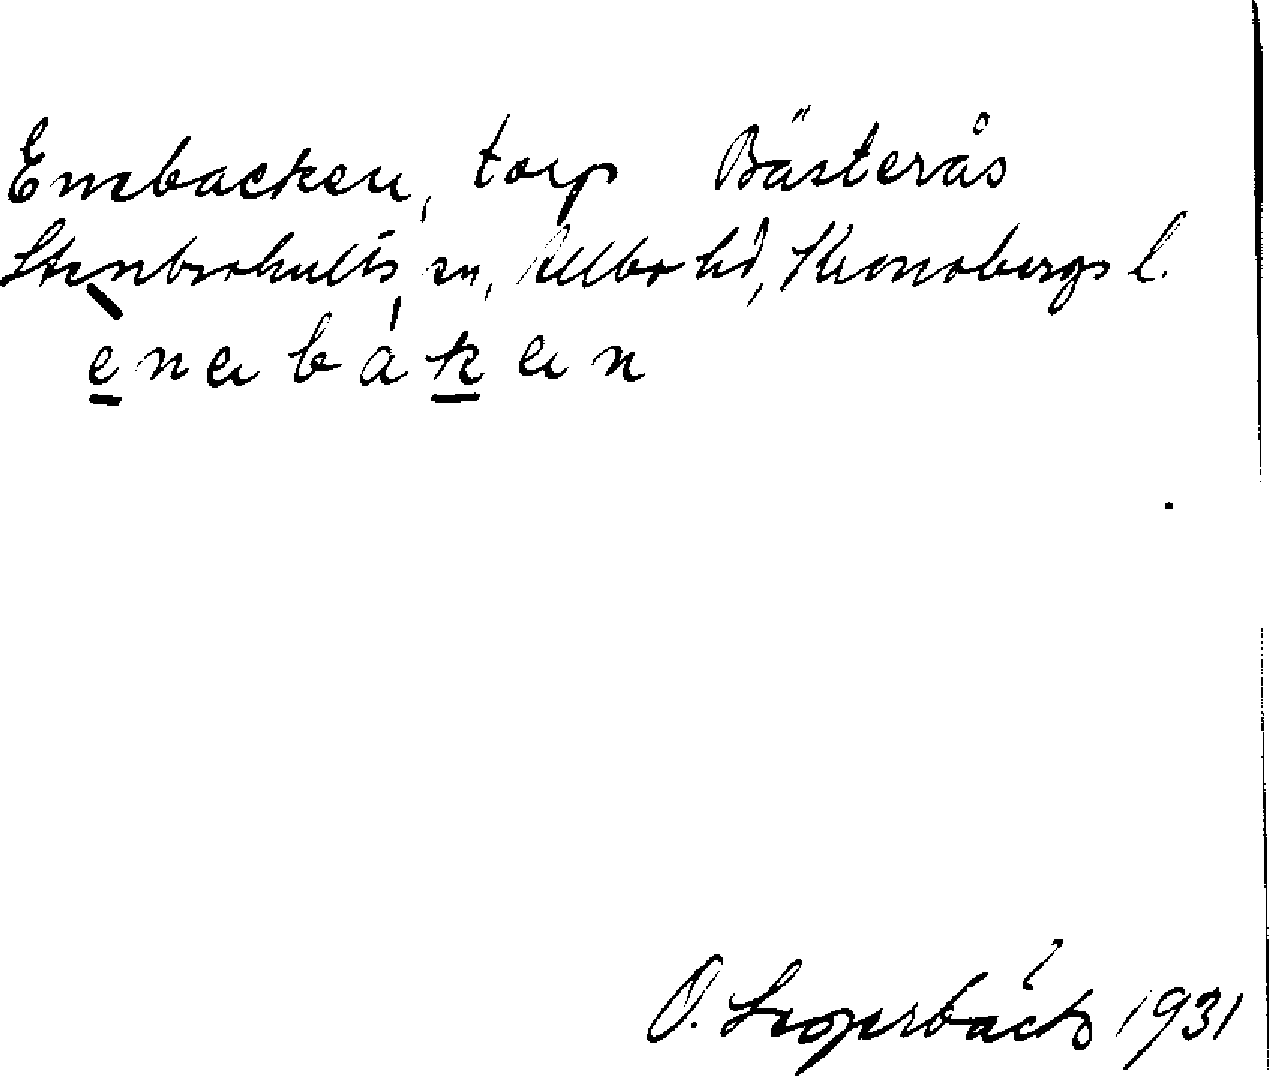 Enebacken, torp Bästerås
Stenbrohults sn, Allbo hd, Kronobergs l.
enabákan
O. 1931